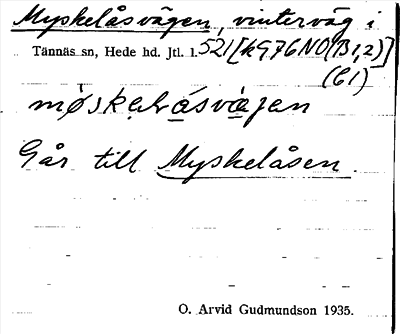 Myskelåsvägen, vinterväg i
Tännäs sn, Hede hd. Jtl. l. 521 [kG76NO(B1,2)]
(C1)
møskəlråsvägen
Går till Myskelåsen.
O. Arvid Gudmundson 1935.